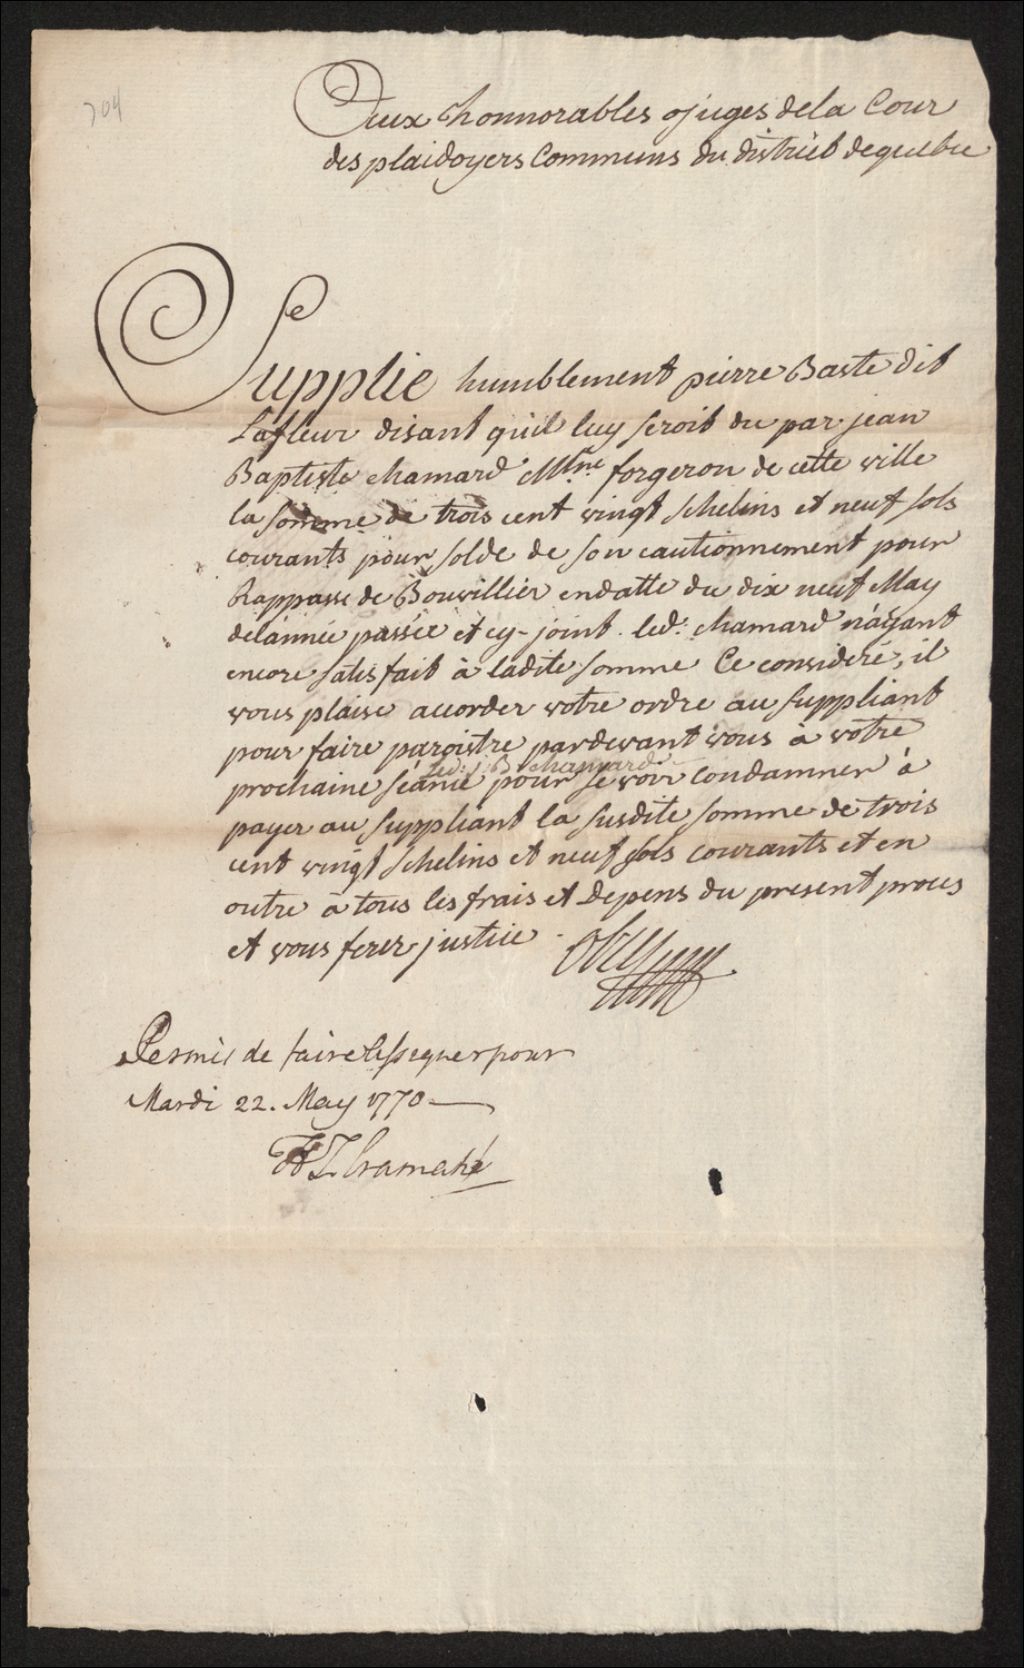 704
Aux honnorables juges dela Cour
des plaidoyers Communs du district dequebec
Supplie humblement pierre Baste dit
Lafleur disant qu'il luy seroit du par jean
Baptiste chamard Mtre forgeron de cette ville
la somme de trois cent vingt schelins et neuf sols
courants pour solde de son cautionnement pour
de Bouvillier endatte du dix neuf May
delannée passée et cy-joint. led: chamard n'ayant
encore satisfait à ladite somme Ce consideré, il
vous plaise accorder votre ordre au suppliant
pour faire paroistre pardevant vous à votre
led: j: B: chamard
prochaine séance pour se voir condamner à
payer au suppliant la susdite somme de trois
cent vingt schelins et neuf sols courants et en
outre à tous les frais et Depens du present proces
et vous ferez justice.
Permis de faire pour
Mardi 22. May 1770
HT Cramahé